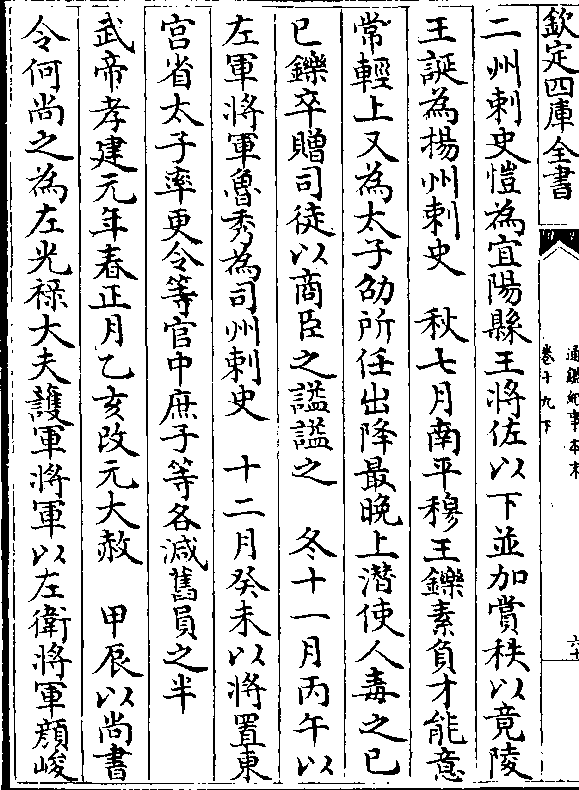 欽定四庫全書
通鑑紀事本末
卷十九下
六十
二州刺史愷為宜陽縣王將佐以下並加賞秩以竟陵
王誕為揚州刺史　秋七月南平穆王鑠素負才能意
常輕上又為太子劭所任出降最晚上潛使人毒之己
巳鑠卒贈司徒以商臣之諡諡之　冬十一月丙午以
左軍將軍魯秀為司州刺史　十二月癸未以將置東
宮省太子率更令等官中庶子等各減舊員之半
武帝孝建元年春正月乙亥改元大赦　甲辰以尚書
令何尚之為左光祿大夫護軍將軍以左衛將軍顏峻